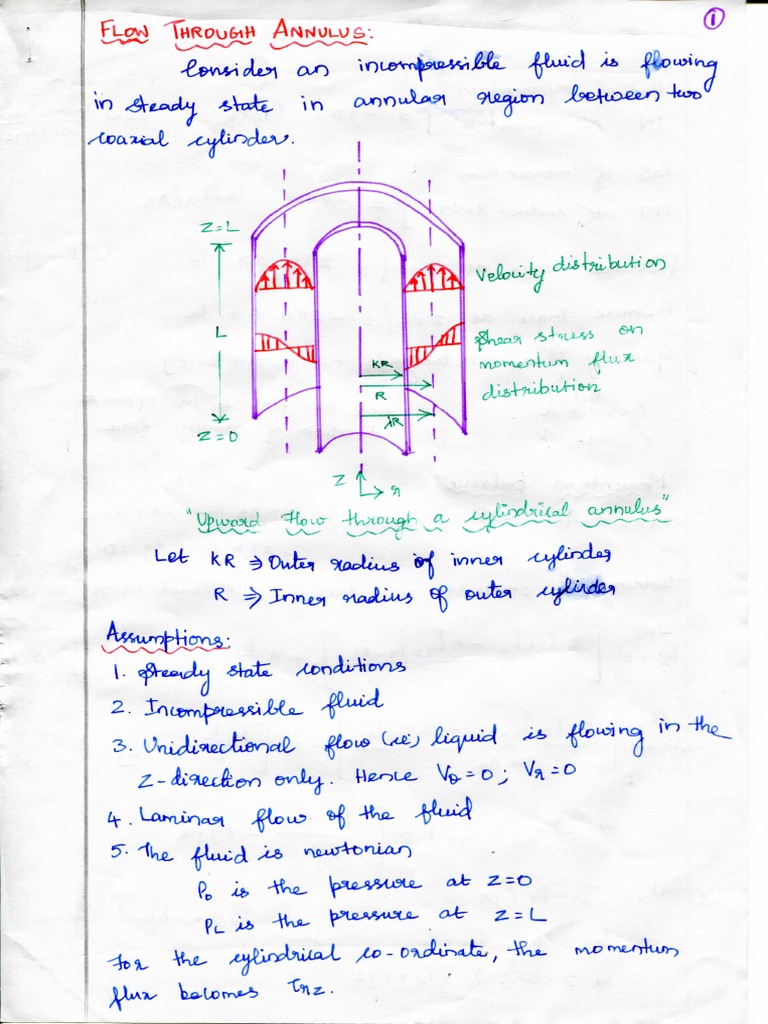 ①
FLOW THROUGH ANNULUS:
Consider an incompressible fluid is flowing
in steady state in annular region between two
coaxial cylinder.
Z=L
Velocity distribution
L
Shear stress or
momentum flux
distribution
KR
R
λR
Z=0
Z
r
"Upward Flow through a cylindrical annulus"
Let KR ⇒ Outer radius of inner cylinder
R ⇒ Inner radius of outer cylinder
Assumptions:
1. Steady state conditions
2. Incompressible fluid
3. Unidirectional flow (ie) liquid is flowing in the
Z-direction only. Hence Vθ=0; Vr=0
4. Laminar flow of the fluid
5. The fluid is newtonian
P₀ is the pressure at Z=0
PL is the pressure at Z=L
For the cylindrical co-ordinate, the momentum
flux becomes τrz.